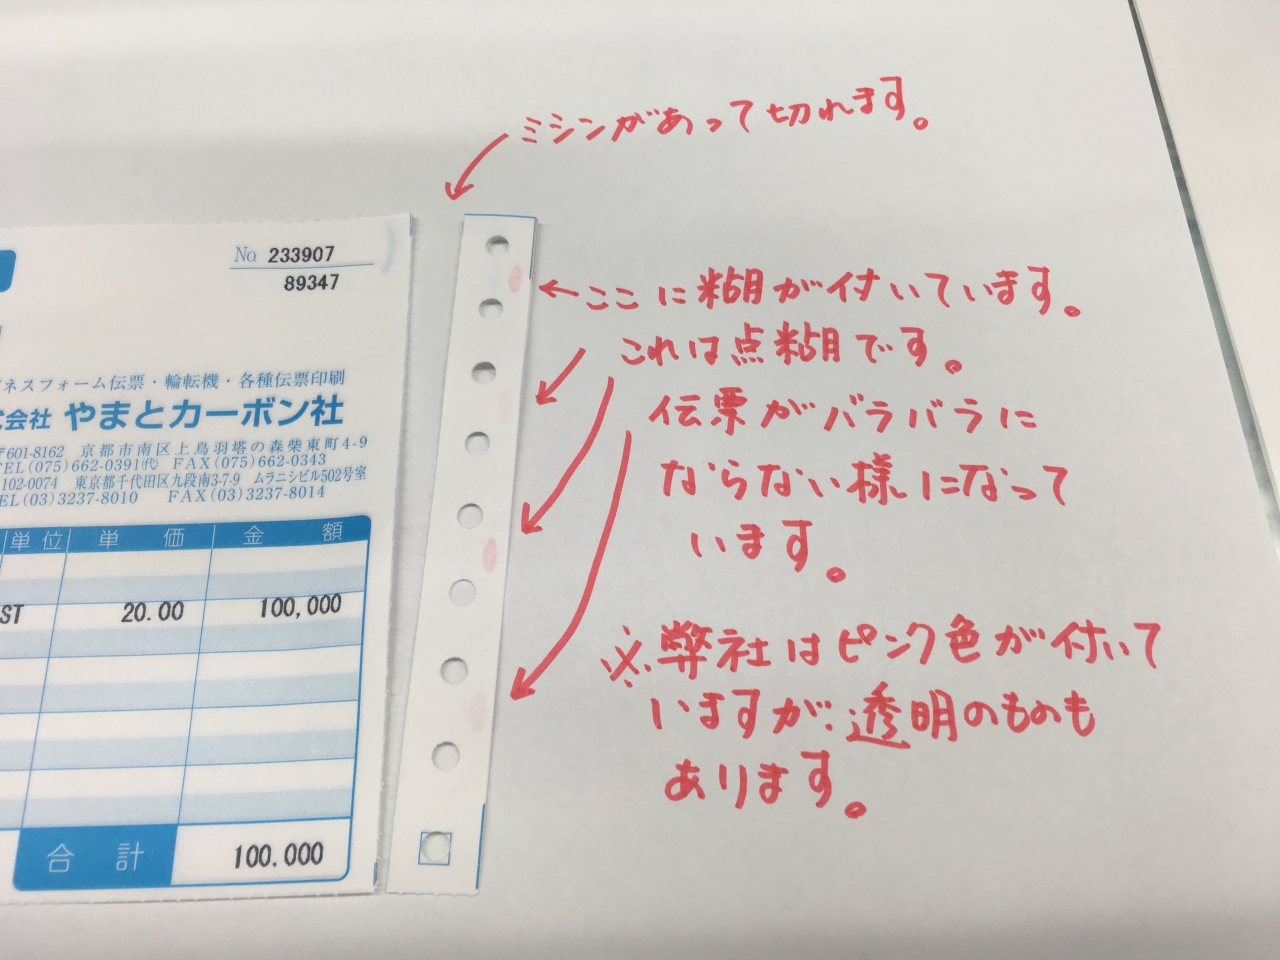 ミシンがあって切れます。
ここに糊が付いています。
これは点糊です。
伝票がバラバラに
ならない様になって
います。
※弊社はピンク色が付いて
いますが、透明のものも
あります。
No. 233907
89347
ネスフォーム伝票・輪転機・各種伝票印刷
式会社 やまとカーボン社
〒601-8162 京都市南区上鳥羽塔の森柴東町4-9
TEL(075)662-0391(代) FAX(075)662-0343
102-0074 東京都千代田区九段南3-7-9 ムラニシビル502号室
TEL(03)3237-8010 FAX(03)3237-8014
単位 単価 金額
ST 20.00 100,000
合計 100.000